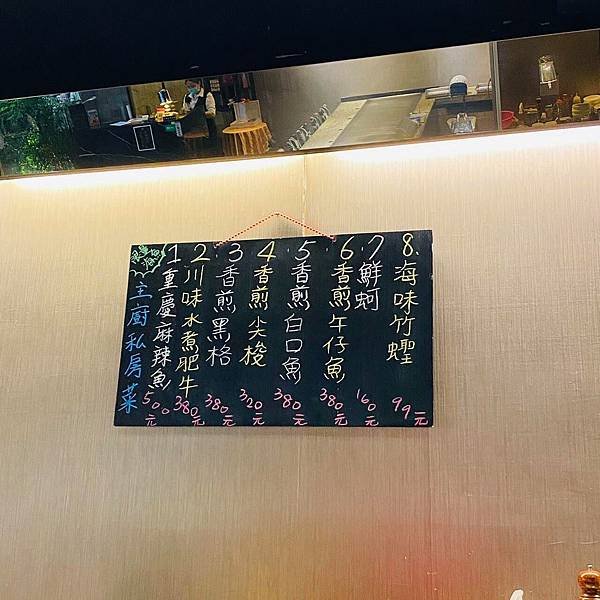 主廚私房菜
1.重慶麻辣魚 500元
2.川味水煮肥牛 380元
3.香煎黑格 380元
4.香煎尖梭 320元
5.香煎白口魚 380元
6.香煎午仔魚 380元
7.鮮蚵 160元
8.海味竹蟶 99元